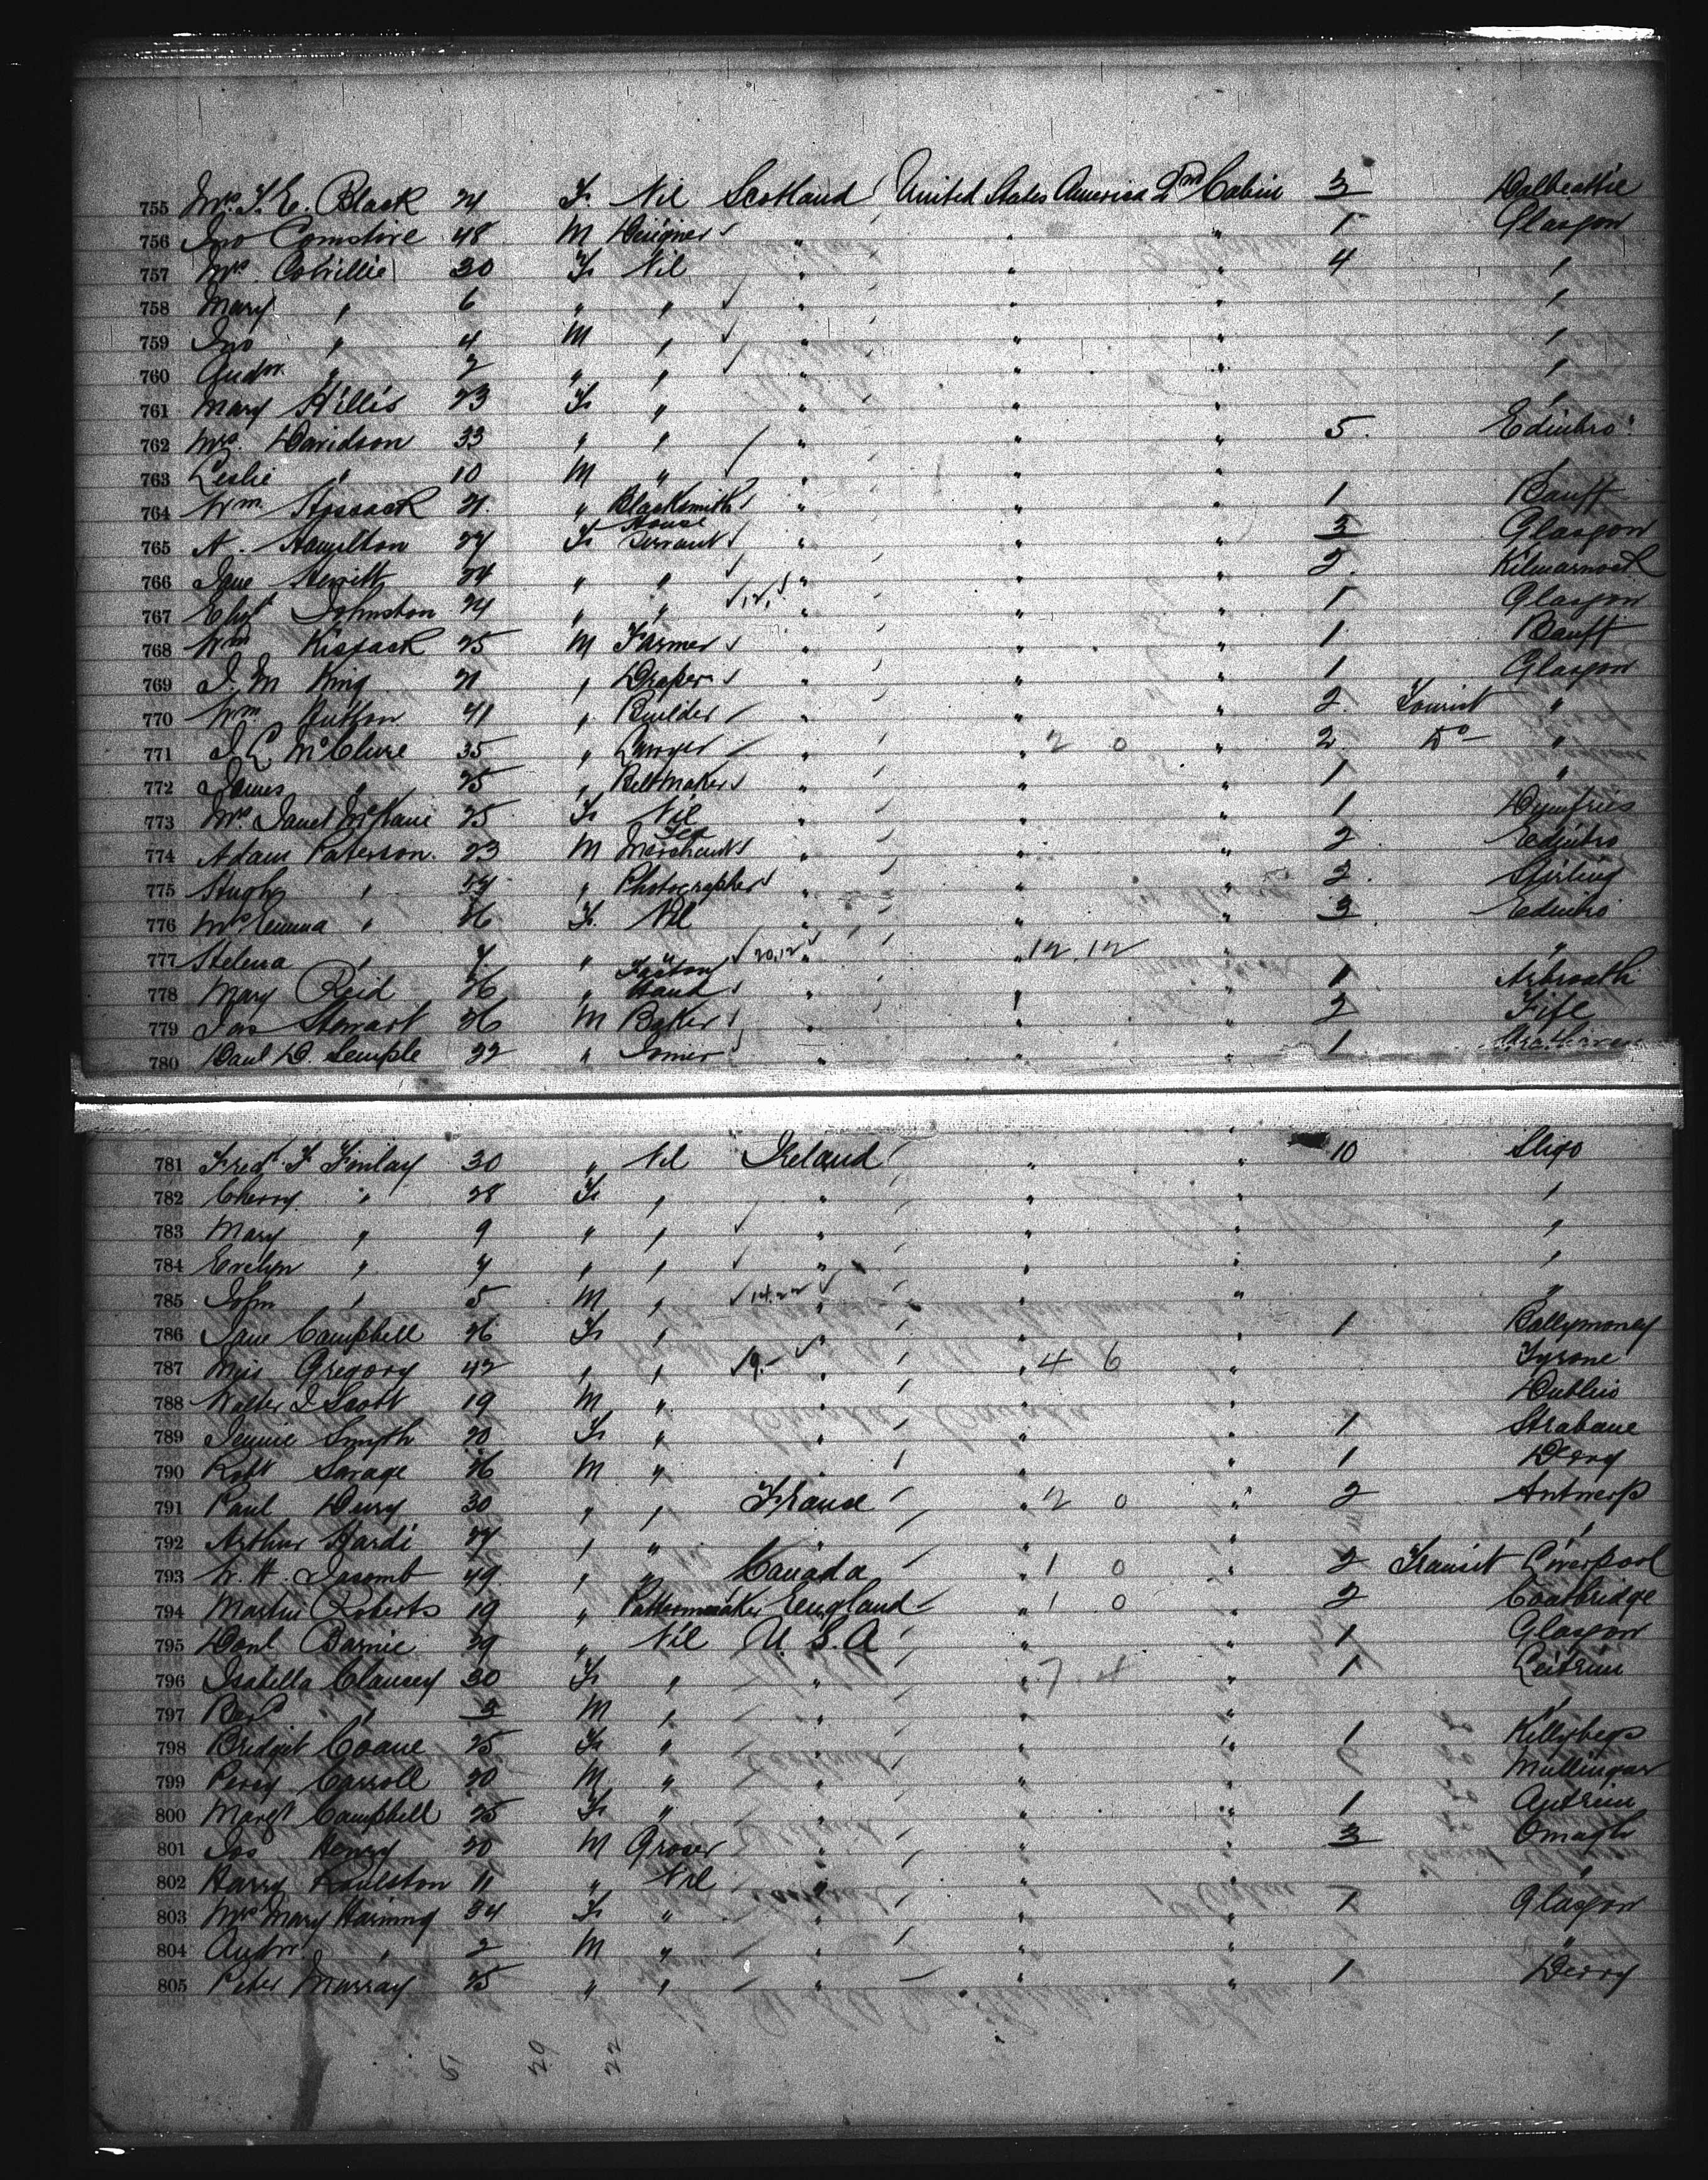 755 Mrs. T. E. Black 24 F. Nil Scotland United States America 2nd Cabin 3 Dalbeattie
756 Jno 48 M Designer " " " 1 Glasgow
757 Mrs. Colvillie 30 F. Nil " " " 4 "
758 Mary " 6 " " " " " "
759 Jno " 4 M " " " " "
760 Andw. " 2 " " " " " "
761 Mary Hillis 23 F. " " " " "
762 Mrs. Davidson 33 " " " " " 5. Edinbro'
763 Leslie " 10 M " " " "
764 Wm. Hossack 21 " Blacksmith " " " 1 Banff
765 A. Hamilton 27 F. House Servant " " " 3 Glasgow
766 Jane 24 " " " " " 2. Kilmarnock
767 Elizt Johnston 24 " " " " " 1 Glasgow
768 Wm Kissack 25 M Farmer " " " 1 Banff
769 J. M King 21 " Draper " " " 1 Glasgow
770 Wm. Hutton 41 " Builder " " " 2. Tourist "
771 J. C McClure 35 " Lawyer " " 2 0 " 2 Do "
772 James " 25 " Beltmaker " " " 1 "
773 Mrs. Janet 25 F. Nil " " " 1 Dumfries
774 Adam Paterson. 23 M Tea Merchant " " " 2 Edinbro
775 Hugh " " Photographer " " " 2. Stirling
776 Mrs Emma " 26 F. Nil " " " 3 Edinbro
777 Helena " 7 " " 20.12 " " 12.12 " "
778 Mary Reid 26 " Factory Hand " " " 1 Arbroath
779 Jas Stewart 36 M Baker " " " 2 Fife
780 Danl D. Semple 22 " Joiner " " " 1 Strathaven
781 Fredk F Finlay 30 " Nil Ireland " " 10 Sligo
782 Cherry " 28 F. " " " " "
783 Mary " 9 " " " " " "
784 Evelyn " 7 " " " " " "
785 John " 5 M " 14.22 " " " "
786 Jane Campbell 26 F. " " " " 1 Ballymoney
787 Miss Gregory 42 " " 19.- " " 4 6 " Tyrone
788 Walter J Scott 19 M " " " " Dublin
789 Jennie Smyth 20 F. " " " " 1 Strabane
790 Robt Savage 26 M " " " " 1 Derry
791 Paul 30 " " France " 2 0 " 2 Antwerp
792 Arthur Hardi 27 " " " " " "
793 W. H. Jacomb 49 " " Canada " 1 0 " 2 Transit Liverpool
794 Martin Roberts 19 " Patternmaker England " 1 0 " 2 Coatbridge
795 Danl Barnie 29 " Nil U. S. A " " 1 Glasgow
796 Isabella Clancey 30 F. " " " 7. 4 " 1 Leitrim
797 " 3 M " " " " "
798 Bridget Coane 25 F. " " " " 1 Killybegs
799 Percy Carroll 20 M " " " " Mullingar
800 Margt Campbell 25 F. " " " " 1 Antrim
801 Jos Henry 20 M Grocer " " " 3 Omagh
802 Harry Roulston 11 " Nil " " " "
803 Mrs Mary Haining 34 F. " " " " 1 Glasgow
804 Andw. " 2 M " " " " "
805 Peter Murray 25 " " " " " 1 Derry
29 22